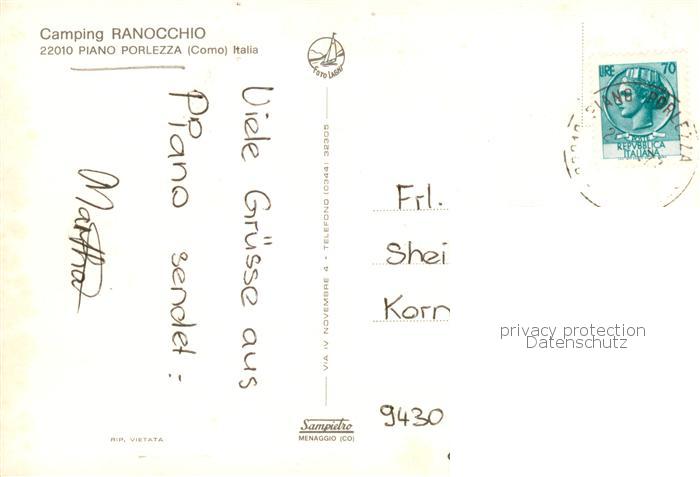 Camping RANOCCHIO
22010 PIANO PORLEZZA (Como) Italia
FOTO LAGHI
LIRE 70
POSTE
REPVBBLICA
ITALIANA
PIANO PORLEZZA
Viele Grüsse aus
Piano sendet:
Martha
VIA IV NOVEMBRE 4 - TELEFONO (0344) 32305
Frl.
Shei
Korn
9430
privacy protection
Datenschutz
Sampietro
MENAGGIO (CO)
RIP. VIETATA